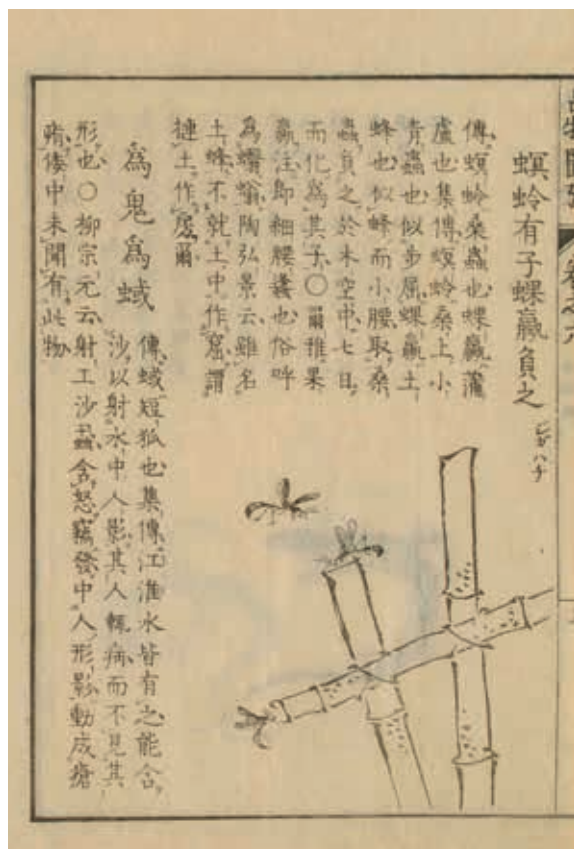 品物圖攷 卷之六
螟蛉有子蜾蠃負之 ジガバチ
傳螟蛉桑蟲也蜾蠃蒲
盧也集傳螟蛉桑上小
青蟲也似步屈蜾蠃土
蜂也似蜂而小腰取桑
蟲負之於木空中七日
而化為其子〇爾雅果
蠃注即細腰蜂也俗呼
為蠮螉陶弘景云雖名
土蜂不就土中作窟謂
摙土作房爾
為鬼為蜮
傳蜮短狐也集傳江淮水皆有之能含
沙以射水中人影其人輒病而不見其
形也〇柳宗元云射工沙蝨含怒竊發中人形影動成瘡
痏倭中未聞有此物